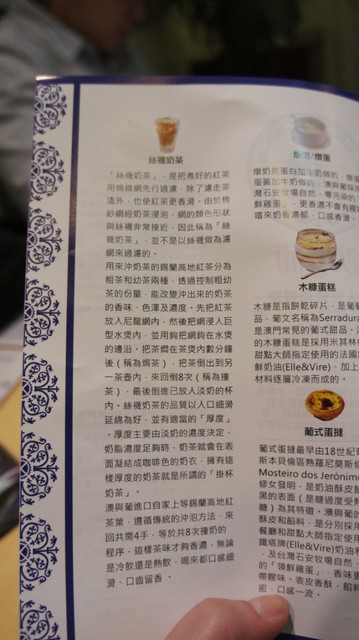 絲襪奶茶
「絲襪奶茶」，是把煮好的紅茶
用棉線網先行過濾，除了濾走茶
渣外，也使紅茶更香滑。由於棉
紗網經奶茶浸泡，網的顏色形狀
與絲襪非常接近，因此稱為「絲
襪奶茶」，並不是以絲襪做為濾
網來過濾的。
用來沖奶茶的錫蘭高地紅茶分為
粗茶和幼茶兩種，透過控制粗幼
茶的份量，能改變沖出來的奶茶
的香味、色澤及濃度。先把紅茶
放人尼龍網內，然後把網浸人巨
型水煲內，並用鉤把網鉤在水煲
的邊沿。把茶燜在茶煲內數分鐘
後（稱為焗茶），把茶倒出到另
一茶壺內，來回倒8次（稱為撞
茶），最後倒進已放人淡奶的杯
內。絲襪奶茶的品質以人口細滑
延綿為好，並有適當的「厚度」
。厚度主要由淡奶的濃度決定，
奶脂濃度足夠時，奶茶就會在表
面凝結成咖啡色的奶衣，擁有這
樣厚度的奶茶就是所謂的「掛杯
奶茶」。
澳與葡進口自家上等錫蘭高地紅
茶葉，遵循傳統的沖泡方法，來
回共需4手，等於共8次撞奶的
程序，這樣茶味才夠香濃，無論
是冷飲還是熱飲，喝來都口感細
滑，口齒留香。
燉奶/燉蛋
燉奶是蛋白加牛奶做的，燉蛋
蛋黃加牛奶做的，澳與葡採
灣石安牧場自然、零污染的
鮮雞蛋」，更香濃不含有腥
喝來奶香濃郁，口感香滑。
木糠蛋糕
木糠是指餅乾碎片，是葡
品，葡文名稱為Serradur
是澳門常見的葡式甜品。
的木糠蛋糕是採用米其林
甜點大師指定使用的法國
鮮奶油(Elle&Vire)，加上
材料逐層冷凍而成的。
葡式蛋撻
葡式蛋撻最早由18世紀
斯本貝倫區熱羅尼莫斯修
Mosteiro dos Jerónim
修女發明，是奶油酥皮
黑的表面（是糖過度受熱
糖）為其特徵。澳與葡的
酥皮和餡料，是分別採用
餐廳和甜點大師指定使用
鐵塔牌(Elle&Vire)奶油
，及台灣石安牧場自然、
的「領鮮雞蛋」，香味更
帶腥味。表皮香酥，餡料
密，口感一流。